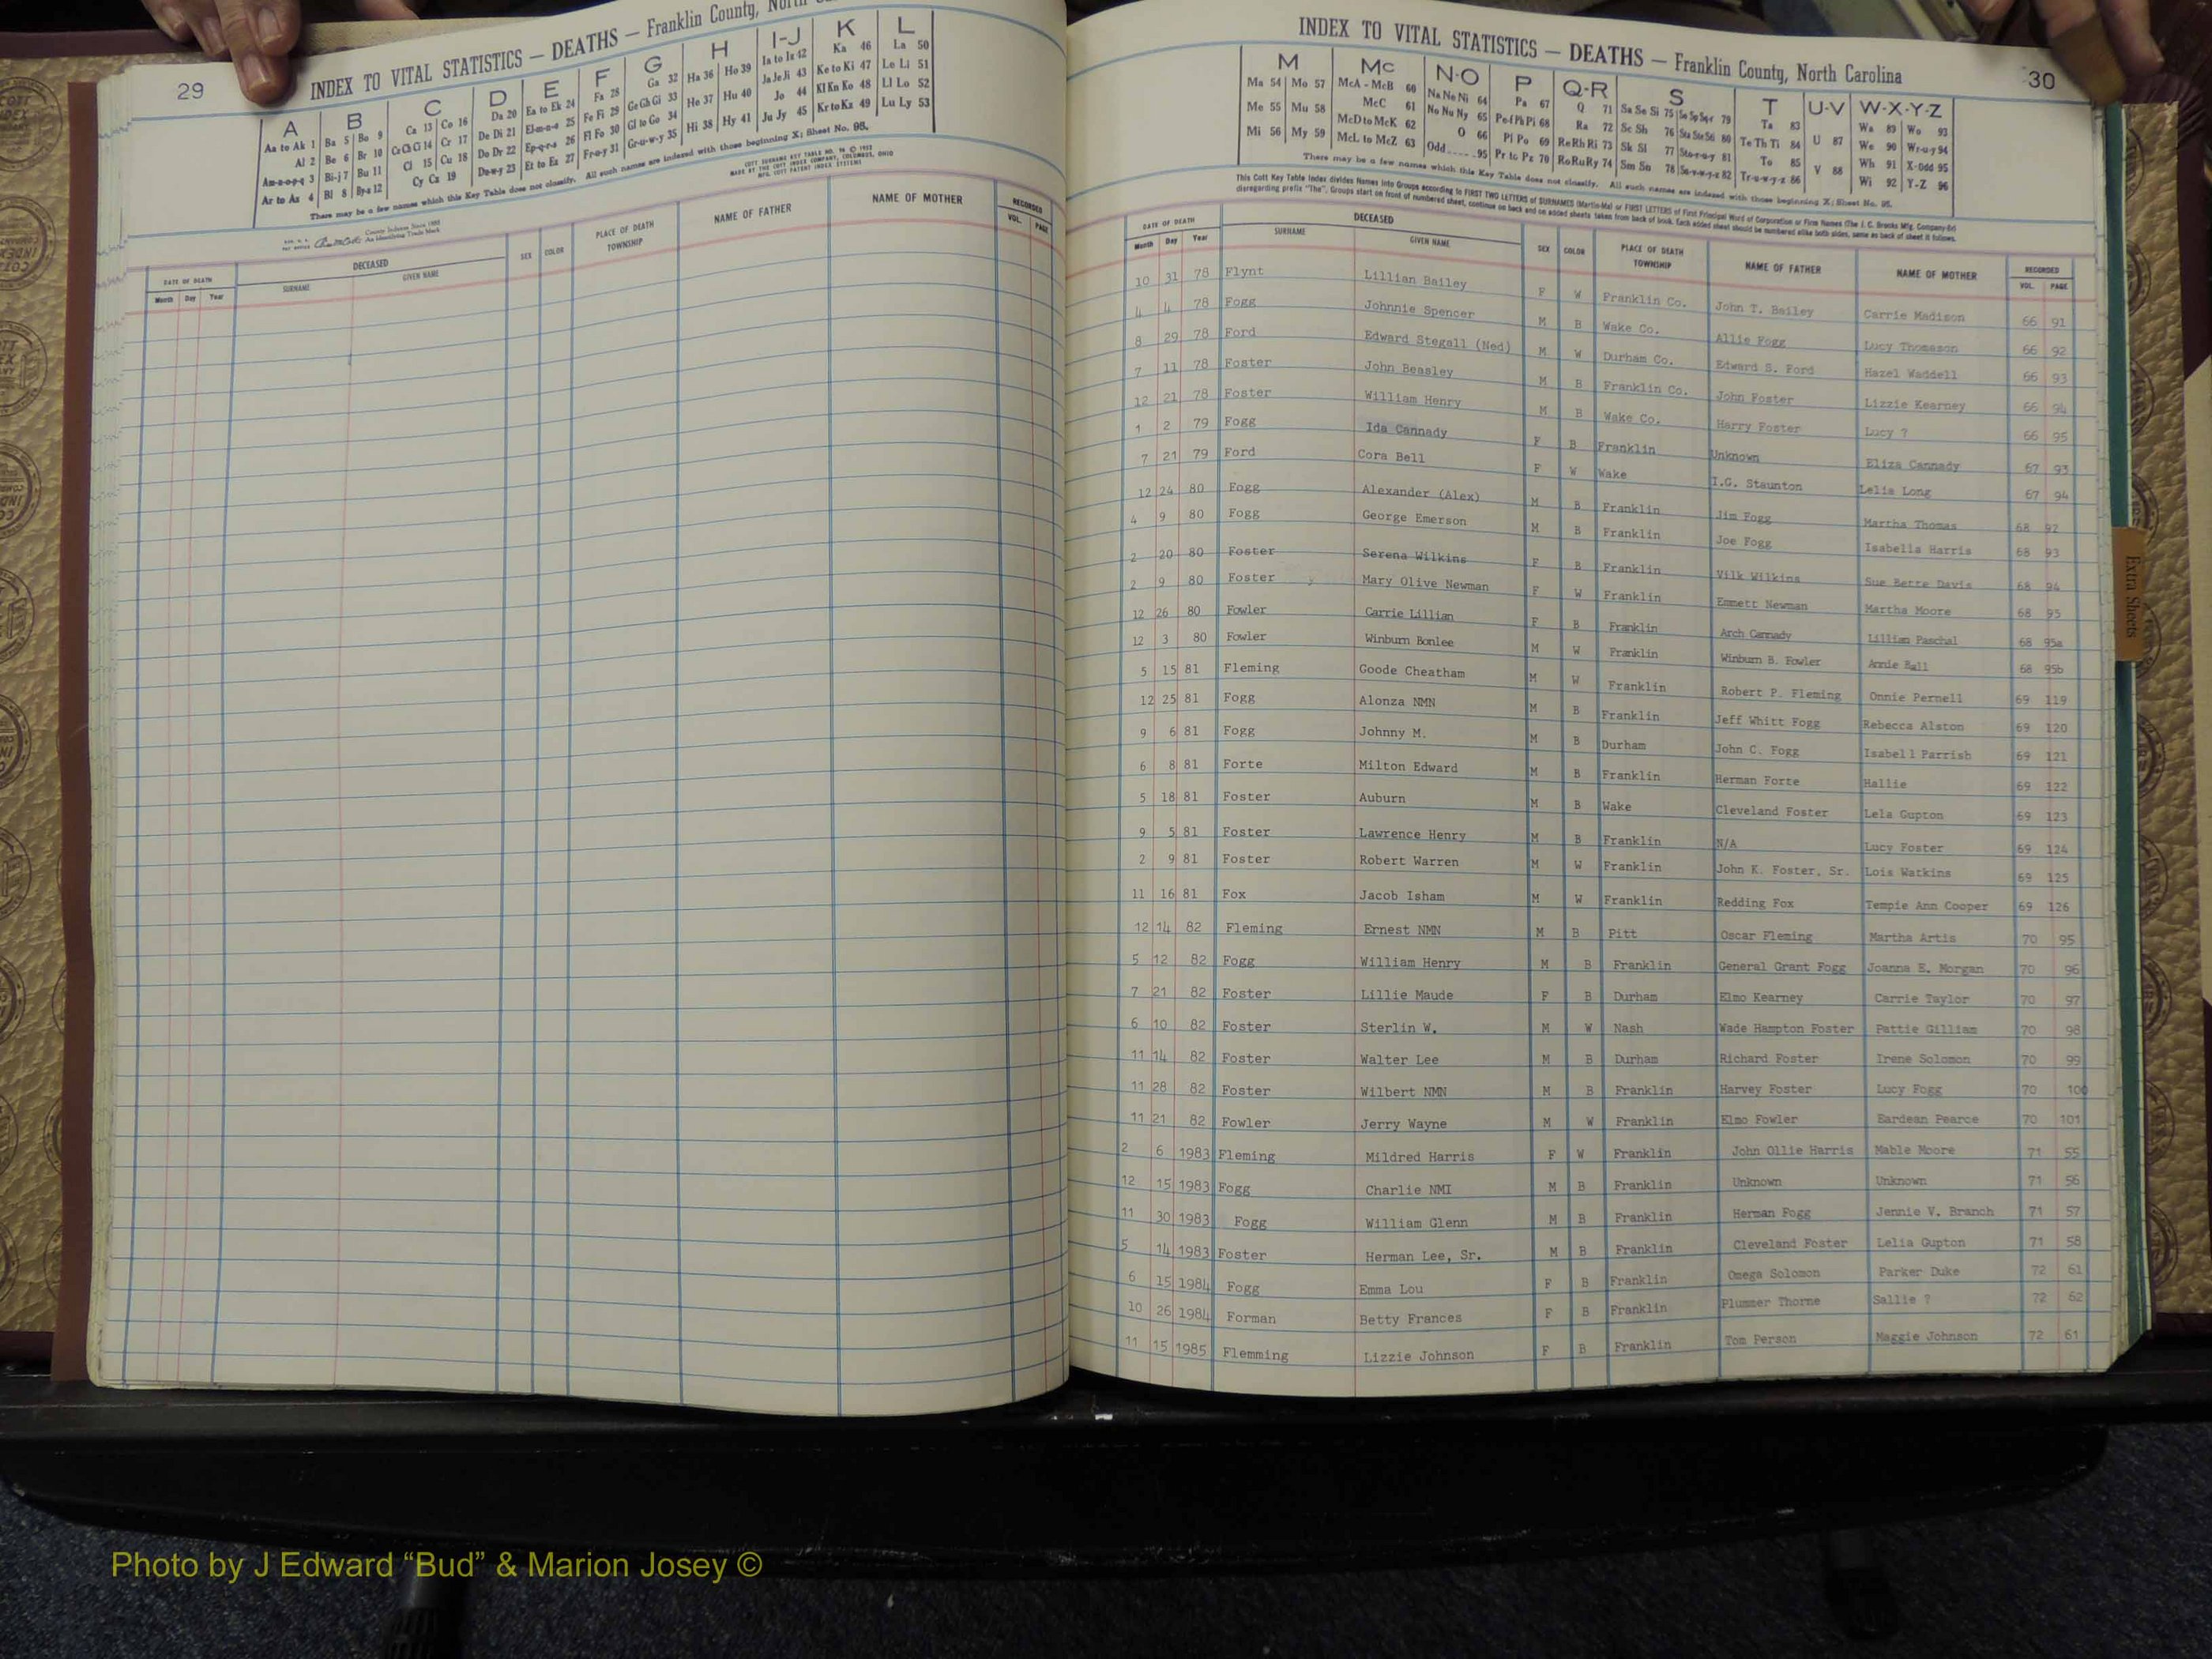 29
INDEX TO VITAL STATISTICS — DEATHS — Franklin County, North
A B C D E F G H I-J K L
Aa to Ak 1 Ba 5 Bo 9 Ca 13 Co 16 Da 20 Ea to Ek 24 Fa 28 Ga 32 Ha 36 Ho 39 Ia to Iz 42 Ka 46 La 50
Al 2 Be 6 Br 10 Ce Ch Ci 14 Cr 17 De Di 21 El-m-n-o 25 Fe Fi 29 Ge Gh Gi 33 He 37 Hu 40 Ja Je Ji 43 Ke to Ki 47 Le Li 51
Am-n-o-p-q 3 Bi-j 7 Bu 11 Cl 15 Cu 18 Do Dr 22 Ep-q-r-s 26 Fl Fo 30 Gl to Go 34 Hi 38 Hy 41 Jo 44 Kl Kn Ko 48 Ll Lo 52
Ar to As 4 Bl 8 By-z 12 Cy Cz 19 Du-w-y 23 Et to Ez 27 Fr-o-y 31 Gr-u-w-y 35 Ju Jy 45 Kr to Kz 49 Lu Ly 53
There may be a few names which this Key Table does not classify. All such names are indexed with those beginning X; Sheet No. 95.
DATE OF DEATH DECEASED SEX COLOR PLACE OF DEATH TOWNSHIP NAME OF FATHER NAME OF MOTHER RECORDED
Month Day Year SURNAME GIVEN NAME VOL. PAGE
INDEX TO VITAL STATISTICS — DEATHS — Franklin County, North Carolina
30
M Mc N-O P Q-R S T U-V W-X-Y-Z
Ma 54 Mo 57 McA - McB 60 Na Ne Ni 64 Pa 67 Q 71 Sa Se Si 75 79 Ta 83 Wa 89 Wo 93
Me 55 Mu 58 McC 61 No Nu Ny 65 Pe-f Ph Pi 68 Ra 72 Sc Sh 76 80 Te Th Ti 84 U 87 We 90 Wr-u-y 94
Mi 56 My 59 McD to McK 62 O 66 Pl Po 69 Re Rh Ri 73 Sk Sl 77 81 To 85 V 88 Wh 91 X-Odd 95
McL to McZ 63 Odd 95 Pr to Pz 70 Ro Ru Ry 74 Sm Sn 78 82 Tr-u-w-y-z 86 Wi 92 Y-Z 96
There may be a few names which this Key Table does not classify. All such names are indexed with those beginning X; Sheet No. 95.
This Cott Key Table Index divides Names into Groups according to FIRST TWO LETTERS of SURNAMES (Martin-Ma) or FIRST LETTERS of First Principal Word of Corporation or Firm Names (The J. C. Brooks Mfg. Company-Br)
disregarding prefix "The". Groups start on front of numbered sheet, continue on back and on added sheets taken from back of book. Each added sheet should be numbered alike both sides, same as back of sheet it follows.
DATE OF DEATH DECEASED SEX COLOR PLACE OF DEATH TOWNSHIP NAME OF FATHER NAME OF MOTHER RECORDED
Month Day Year SURNAME GIVEN NAME VOL. PAGE
10 31 78 Flynt Lillian Bailey F W Franklin Co. John T. Bailey Carrie Madison 66 91
4 4 78 Fogg Johnnie Spencer M B Wake Co. Allie Fogg Lucy Thomason 66 92
8 29 78 Ford Edward Stegall (Ned) M W Durham Co. Edward S. Ford Hazel Waddell 66 93
7 11 78 Foster John Beasley M B Franklin Co. John Foster Lizzie Kearney 66 94
12 21 78 Foster William Henry M B Wake Co. Harry Foster Lucy ? 66 95
1 2 79 Fogg Ida Cannady F B Franklin Unknown Eliza Cannady 67 93
7 21 79 Ford Cora Bell F W Wake I.G. Staunton Lelia Long 67 94
12 24 80 Fogg Alexander (Alex) M B Franklin Jim Fogg Martha Thomas 68 92
4 9 80 Fogg George Emerson M B Franklin Joe Fogg Isabella Harris 68 93
2 20 80 Foster Serena Wilkins F B Franklin Vilk Wilkins Sue Bette Davis 68 94
2 9 80 Foster Mary Olive Newman F W Franklin Emmett Newman Martha Moore 68 95
12 26 80 Fowler Carrie Lillian F B Franklin Arch Cannady Lillian Paschal 68 95a
12 3 80 Fowler Winburn Bonlee M W Franklin Winburn B. Fowler Annie Ball 68 95b
5 15 81 Fleming Goode Cheatham M W Franklin Robert P. Fleming Onnie Pernell 69 119
12 25 81 Fogg Alonza NMN M B Franklin Jeff Whitt Fogg Rebecca Alston 69 120
9 6 81 Fogg Johnny M. M B Durham John C. Fogg Isabell Parrish 69 121
6 8 81 Forte Milton Edward M B Franklin Herman Forte Hallie 69 122
5 18 81 Foster Auburn M B Wake Cleveland Foster Lela Gupton 69 123
9 5 81 Foster Lawrence Henry M B Franklin N/A Lucy Foster 69 124
2 9 81 Foster Robert Warren M W Franklin John K. Foster, Sr. Lois Watkins 69 125
11 16 81 Fox Jacob Isham M W Franklin Redding Fox Tempie Ann Cooper 69 126
12 14 82 Fleming Ernest NMN M B Pitt Oscar Fleming Martha Artis 70 95
5 12 82 Fogg William Henry M B Franklin General Grant Fogg Joanna E. Morgan 70 96
7 21 82 Foster Lillie Maude F B Durham Elmo Kearney Carrie Taylor 70 97
6 10 82 Foster Sterlin W. M W Nash Wade Hampton Foster Pattie Gilliam 70 98
11 14 82 Foster Walter Lee M B Durham Richard Foster Irene Solomon 70 99
11 28 82 Foster Wilbert NMN M B Franklin Harvey Foster Lucy Fogg 70 100
11 21 82 Fowler Jerry Wayne M W Franklin Elmo Fowler Eardean Pearce 70 101
2 6 1983 Fleming Mildred Harris F W Franklin John Ollie Harris Mable Moore 71 55
12 15 1983 Fogg Charlie NMI M B Franklin Unknown Unknown 71 56
11 30 1983 Fogg William Glenn M B Franklin Herman Fogg Jennie V. Branch 71 57
5 14 1983 Foster Herman Lee, Sr. M B Franklin Cleveland Foster Lelia Gupton 71 58
6 15 1984 Fogg Emma Lou F B Franklin Omega Solomon Parker Duke 72 61
10 26 1984 Forman Betty Frances F B Franklin Plummer Thorne Sallie ? 72 62
11 15 1985 Flemming Lizzie Johnson F B Franklin Tom Person Maggie Johnson 72 61
Extra Sheets
Photo by J Edward “Bud” & Marion Josey ©